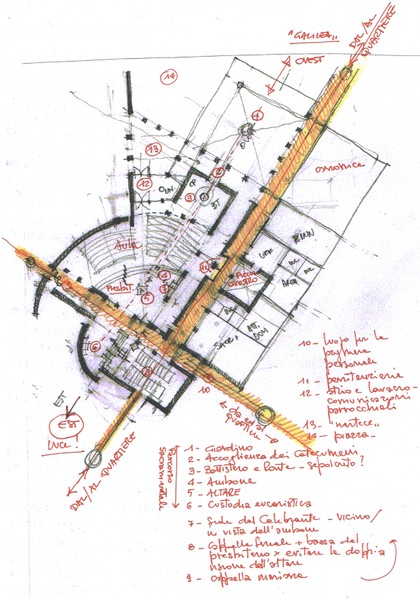 "GALILEA"
DAL/AL
QUARTIERE
OVEST
14
4
13
2
12
3
AULA
PRESBIT.
5
11
6
8
10
EST
EST
LUCE!
DAL/AL QUARTIERE
da/al
quartiere
Percorso
Sacramentale
10 - luogo per la
preghiera
personale
11 - penitenzieria
12 - atrio e lavagna
comunicazioni
parrocchiali
13 - nartece
14 - piazza -
1 - Giardino
2 - Accoglienza dei Catecumeni
3 - Battistero e Fonte - sepolcro?
4 - Ambone
5 - ALTARE
6 - Custodia eucaristica
7 - Sede del Celebrante - Vicino/
in vista dell'ambone
8 - Cappella feriale + bassa del
presbiterio x evitare la doppia
visione dell'altare
9 - cappella mariana